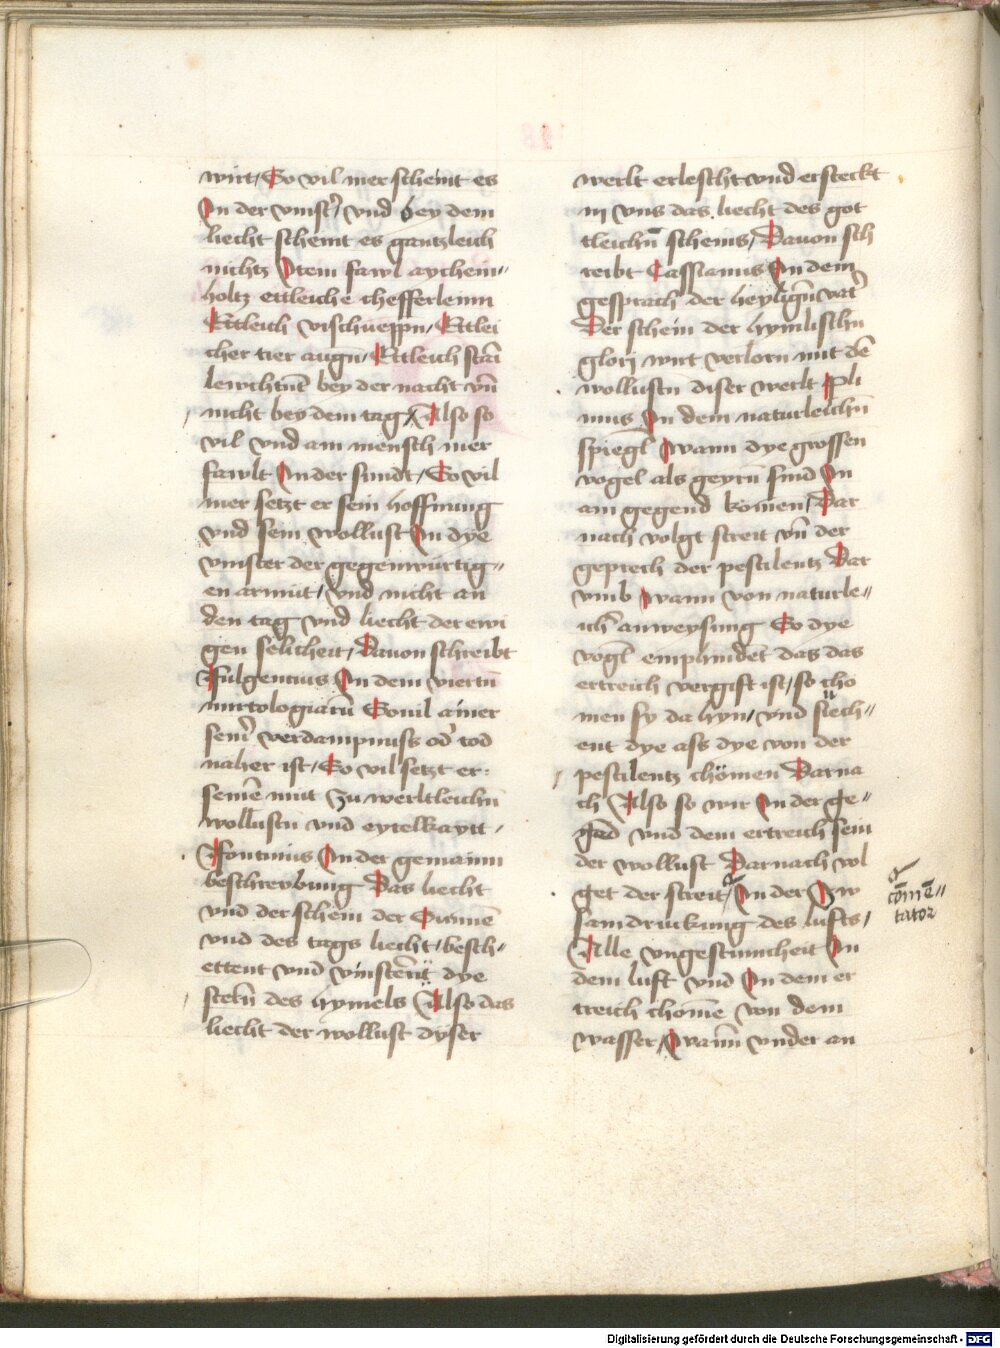 wirt / So vil mer scheint es
In der vinst' vnd bey dem
liecht scheint es gantzleich
nichtz Item fawl aychein„
holtz ettleiche chefferleinn
Ettleich vischueppn / Ettlei
cher tier augn̄ / Ettleich stai
lewchtnt̄ bey der nacht vn̄
nicht bey dem tag Also so
vil vnd am mensch mer
fawlt In der sundt / So vil
mer setzt er sein hoffnung
vnd sein wollust In dye
vinster der gegenwürtig„
en armüt / vnd nicht an
den tag vnd liecht der ewi
gen selicheit / Dauon schreibt
Fulgencius In dem viertn̄
mitologiarū Souil ainer
sein' verdampnuss od' tod
naher ist / So vil setzt er
seinē mut zu werltleichn̄
wollustn vnd eytelkaytt
Fontinus In der gemainn
beschreybung Das liecht
vnd der schein der Sunnē
vnd des tags liecht / besch„
ettent vnd vinstern̄t dye
steln̄ des hymels Also das
liecht der wollust dyser
werlt erlescht vnd ersteckt
in vns das liecht des got
tleichn̄ scheins / Dauon sch
reibt Cassianus In dem
gesprach der heylign̄ vat'
Der schein der hymlischn
glori wirt verlorn mit dē
wollustn diser werlt Pli
nius In dem naturleichn̄
spiegl Wann dye grossen
vogel als geyrn̄ sind In
ain gegend komen / Dar
nach volgt streit vn̄ der
geprech der pestilentz Dar
vmb Wann von naturle„
ich' anweysung So dye
vogl emphindēt das das
ertreich vergift ist / so cho
men sy da hyn / vnd süech„
ent dye ass dye von der
pestilentz chömen Darna
ch Also so wir In der ge„
gad vnd dem ertreich sein
der wollust Darnach vol
get der streit / In der Zw
samdruckung des lufts /
Alle vngestumcheit In
dem luft vnd In dem er
treich chomē von dem
wasser / Wann̄ vnder an
cōmē„
tator
Digitalisierung gefördert durch die Deutsche Forschungsgemeinschaft - DFG